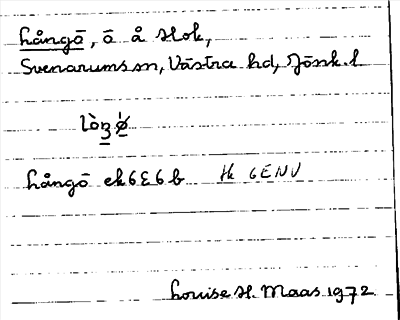 Långö, ö å Hok,
Svenarums sn, Västra hd, Jönk. l
Långö ek 6E6b Hk 6E NV
Louise H. Maas 1972